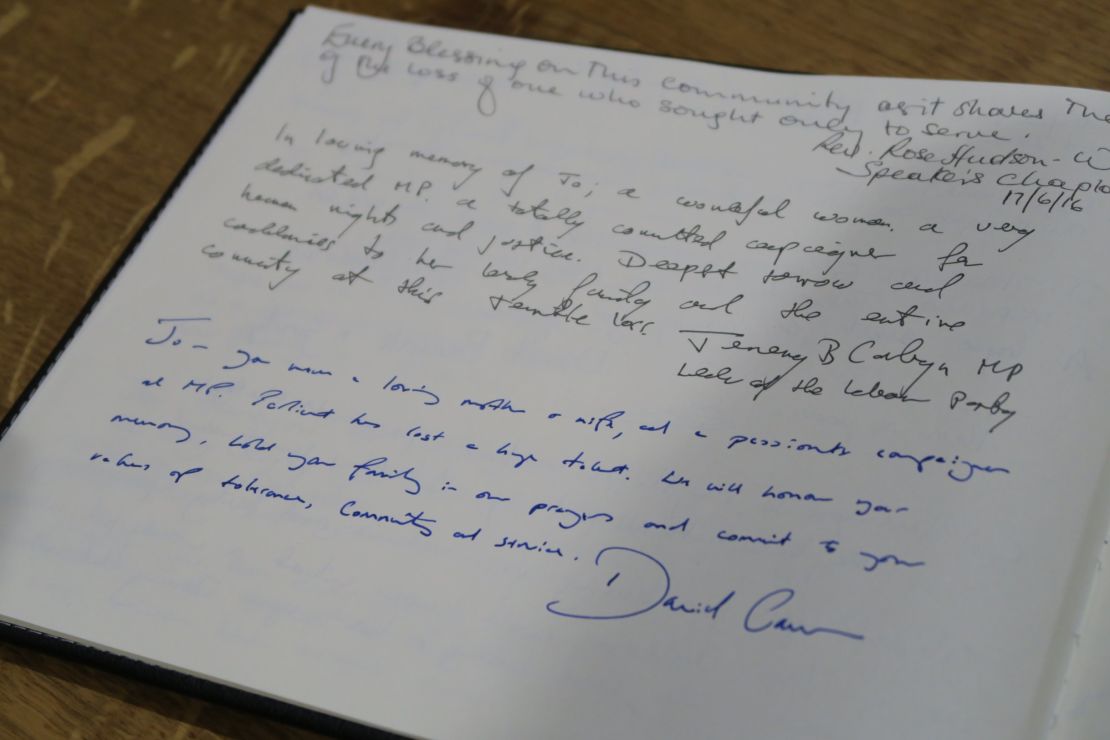 Every Blessing on This community as it shares The
of the loss of one who sought only to serve.
Rev. Rose Hudson-W
Speaker's Chapla
17/6/16
In loving memory of Jo; a wonderful woman. a very
dedicated MP. a totally committed campaigner for
human rights and justice. Deepest sorrow and
condolences to her lovely family and the entire
community at this terrible loss.
Jeremy B Corbyn MP
Leader of the Labour Party
Jo – you were a loving mother & wife, and a passionate campaigner
and MP. Parliament has lost a huge talent. We will honour your
memory, hold your family in our prayers and commit to your
values of tolerance, Community and service.
David Cam